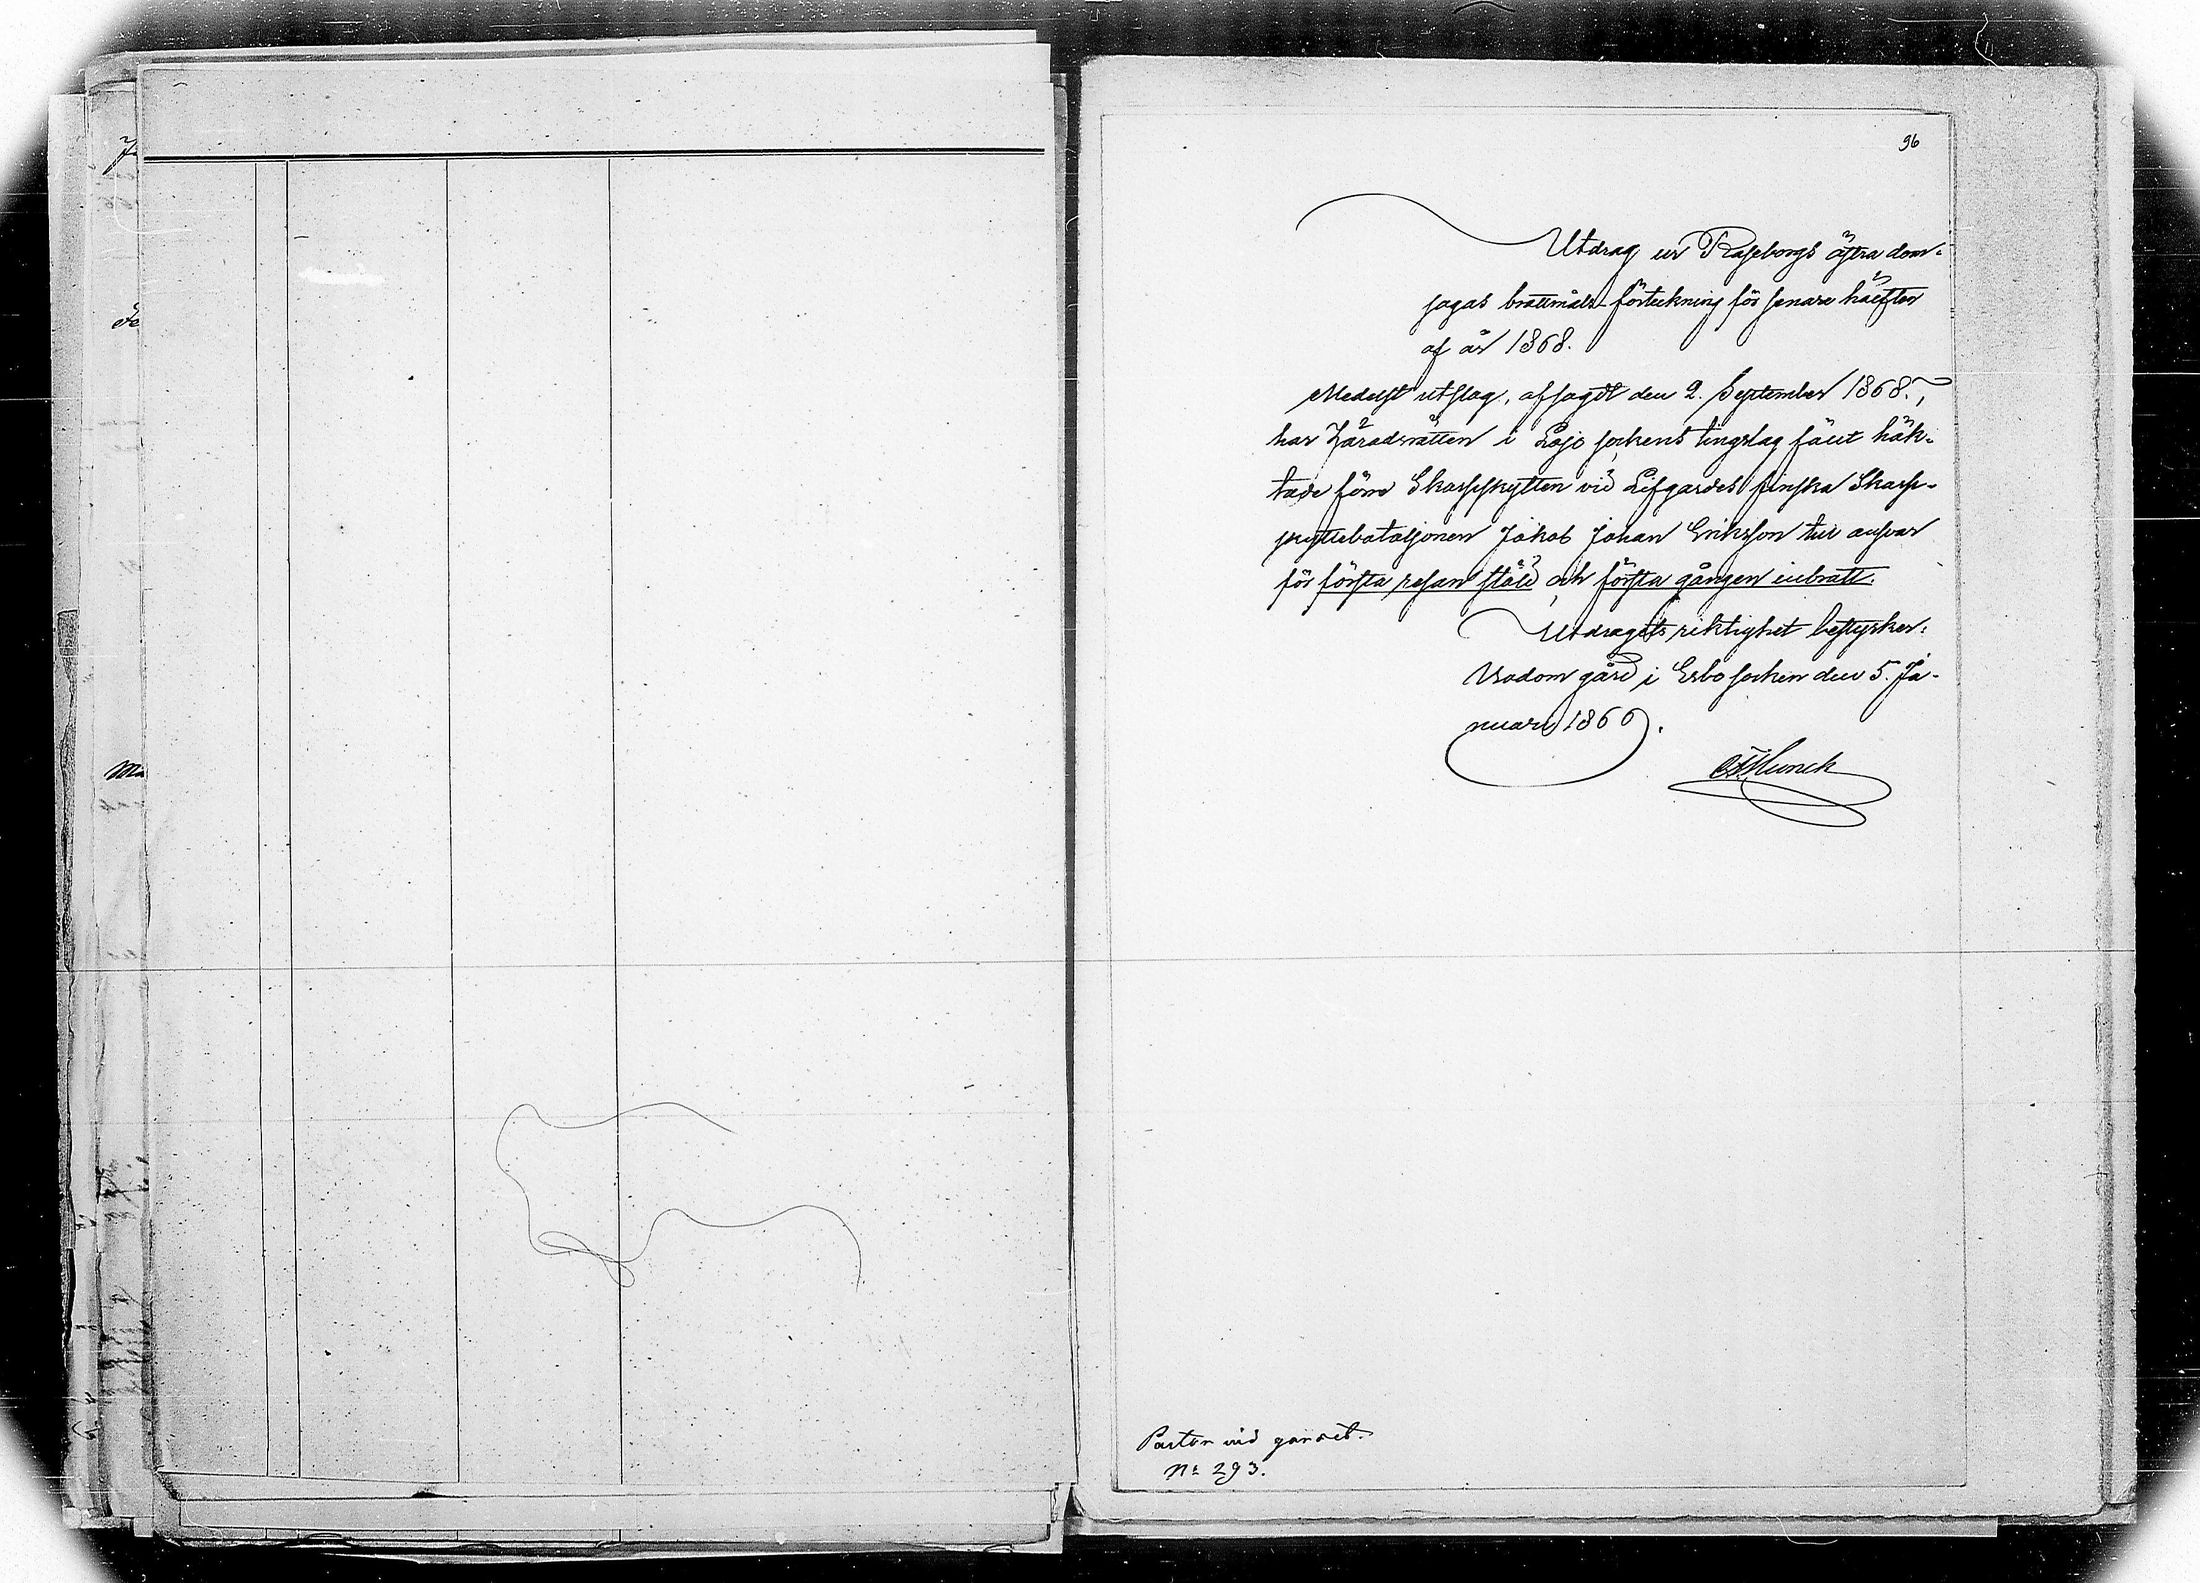 96
Utdrag ur Raseborgs östra dom-
sagas brottmåls-förteckning för senare hälften
af år 1868.
Medelst utslag, afsagdt den 2. September 1868,
har Häradsrätten i Lojo sockens tingslag fällt häk-
tade förre Skarpskytten vid Lifgardes finska Skarp-
skyttebataljonen Jakob Johan Eriksson till ansvar
för första resan stöld och första gången inbrott.
Utdragets riktighet bestyrker:
Bodom gård i Esbo socken den 5. Ja-
nuari 1869.
Munck
Pastor vid gardet.
No 293.